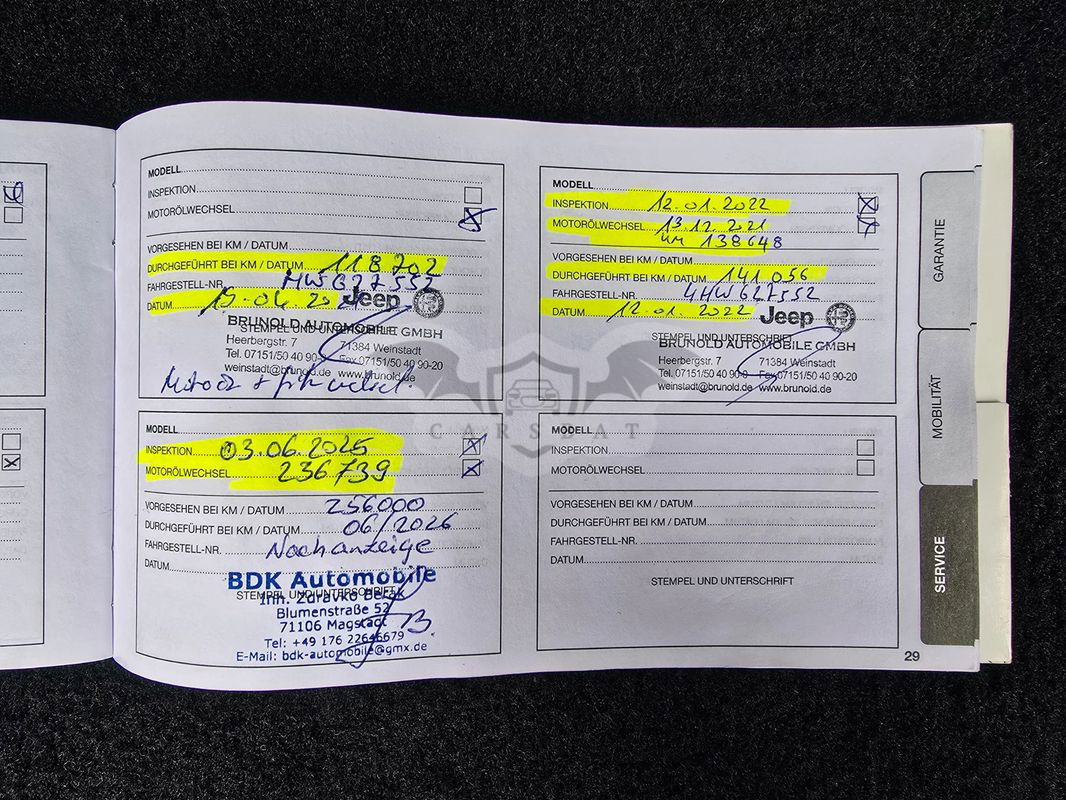 MODELL
INSPEKTION
MOTORÖLWECHSEL
VORGESEHEN BEI KM / DATUM
DURCHGEFÜHRT BEI KM / DATUM 118702
FAHRGESTELL-NR. HW627552
DATUM
Jeep
BRUNOLD AUTOMOBILE GMBH
STEMPEL UND UNTERSCHRIFT
Heerbergstr. 7 71384 Weinstadt
Tel. 07151/50 40 90-0 Fax 07151/50 40 90-20
weinstadt@brunold.de www.brunold.de
MODELL
INSPEKTION 12.01.2022
MOTORÖLWECHSEL 13.12.2021
KM 138648
VORGESEHEN BEI KM / DATUM
DURCHGEFÜHRT BEI KM / DATUM 141.056
FAHRGESTELL-NR. 4HW627552
DATUM 12.01.2022
Jeep
STEMPEL UND UNTERSCHRIFT
BRUNOLD AUTOMOBILE GMBH
Heerbergstr. 7 71384 Weinstadt
Tel. 07151/50 40 90-0 Fax 07151/50 40 90-20
weinstadt@brunold.de www.brunold.de
CARSDAT
MODELL
INSPEKTION 03.06.2025
MOTORÖLWECHSEL 236739
VORGESEHEN BEI KM / DATUM 256000
DURCHGEFÜHRT BEI KM / DATUM 06/2026
FAHRGESTELL-NR. Nach anzeige
DATUM
BDK Automobile
STEMPEL UND UNTERSCHRIFT
Inh. Zdravko
Blumenstraße 52
71106 Magstadt
Tel: +49 176
E-Mail: bdk-automobile@gmx.de
MODELL
INSPEKTION
MOTORÖLWECHSEL
VORGESEHEN BEI KM / DATUM
DURCHGEFÜHRT BEI KM / DATUM
FAHRGESTELL-NR.
DATUM
STEMPEL UND UNTERSCHRIFT
29
GARANTIE
MOBILITÄT
SERVICE